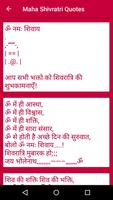 Maha Shivratri Quotes
ॐ नमः शिवाय
,-""-,
| == |
| .@. |
आप सभी भक्तो को शिवरात्रि की
शुभकामनाएँ!
ॐ में ही आस्था,
ॐ में ही विश्वास,
ॐ में ही शक्ति,
ॐ में ही सारा संसार,
ॐ से होती है अच्छे दिन की सुरुवात,
बोलो ॐ नमः शिवाय,
शिवरात्रि मुबारक हो;;;
जय भोलेनाथ,,,,,,,
शिव की शक्ति शिव की भक्ति,